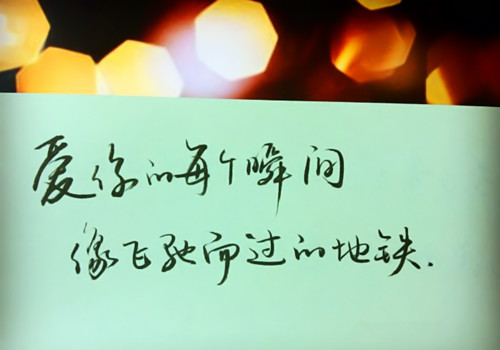 爱你的每个瞬间
像飞驰而过的地铁.